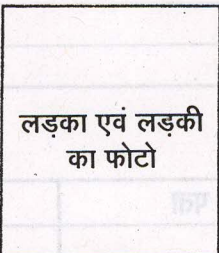 लड़का एवं लड़की
का फोटो